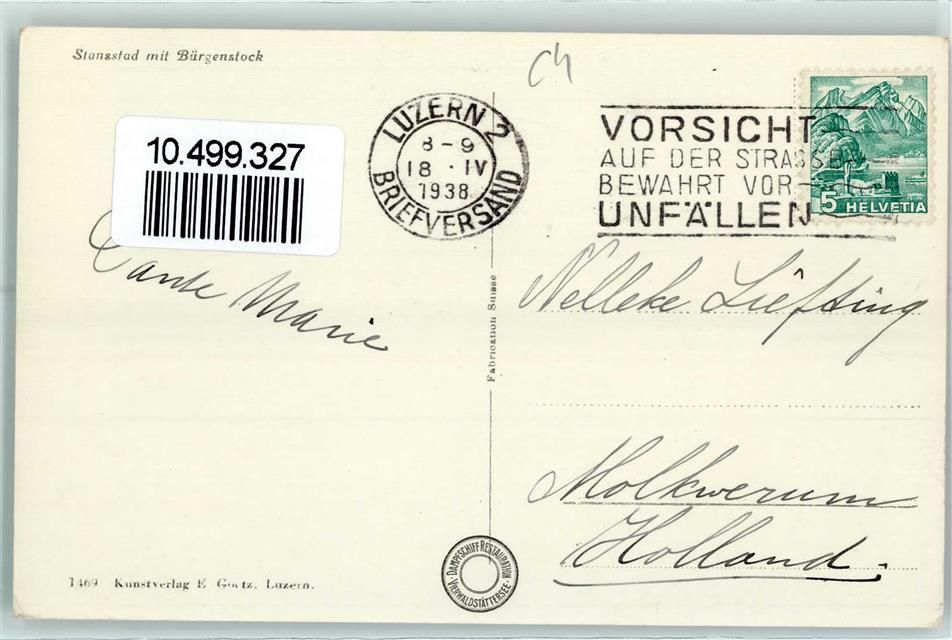 Stansstad mit Bürgenstock
Ch
10.499.327
LUZERN 2
8-9
18 · IV
1938
BRIEFVERSAND
VORSICHT
AUF DER STRASSE
BEWAHRT VOR
UNFÄLLEN
5 HELVETIA
Tante Marie
Nelleke Liefting
Molkwerum
Holland.
Fabrication Suisse
DAMPFSCHIFF RESTAURATION
VIERWALDSTÄTTERSEE
1469 Kunstverlag E. Goetz, Luzern.